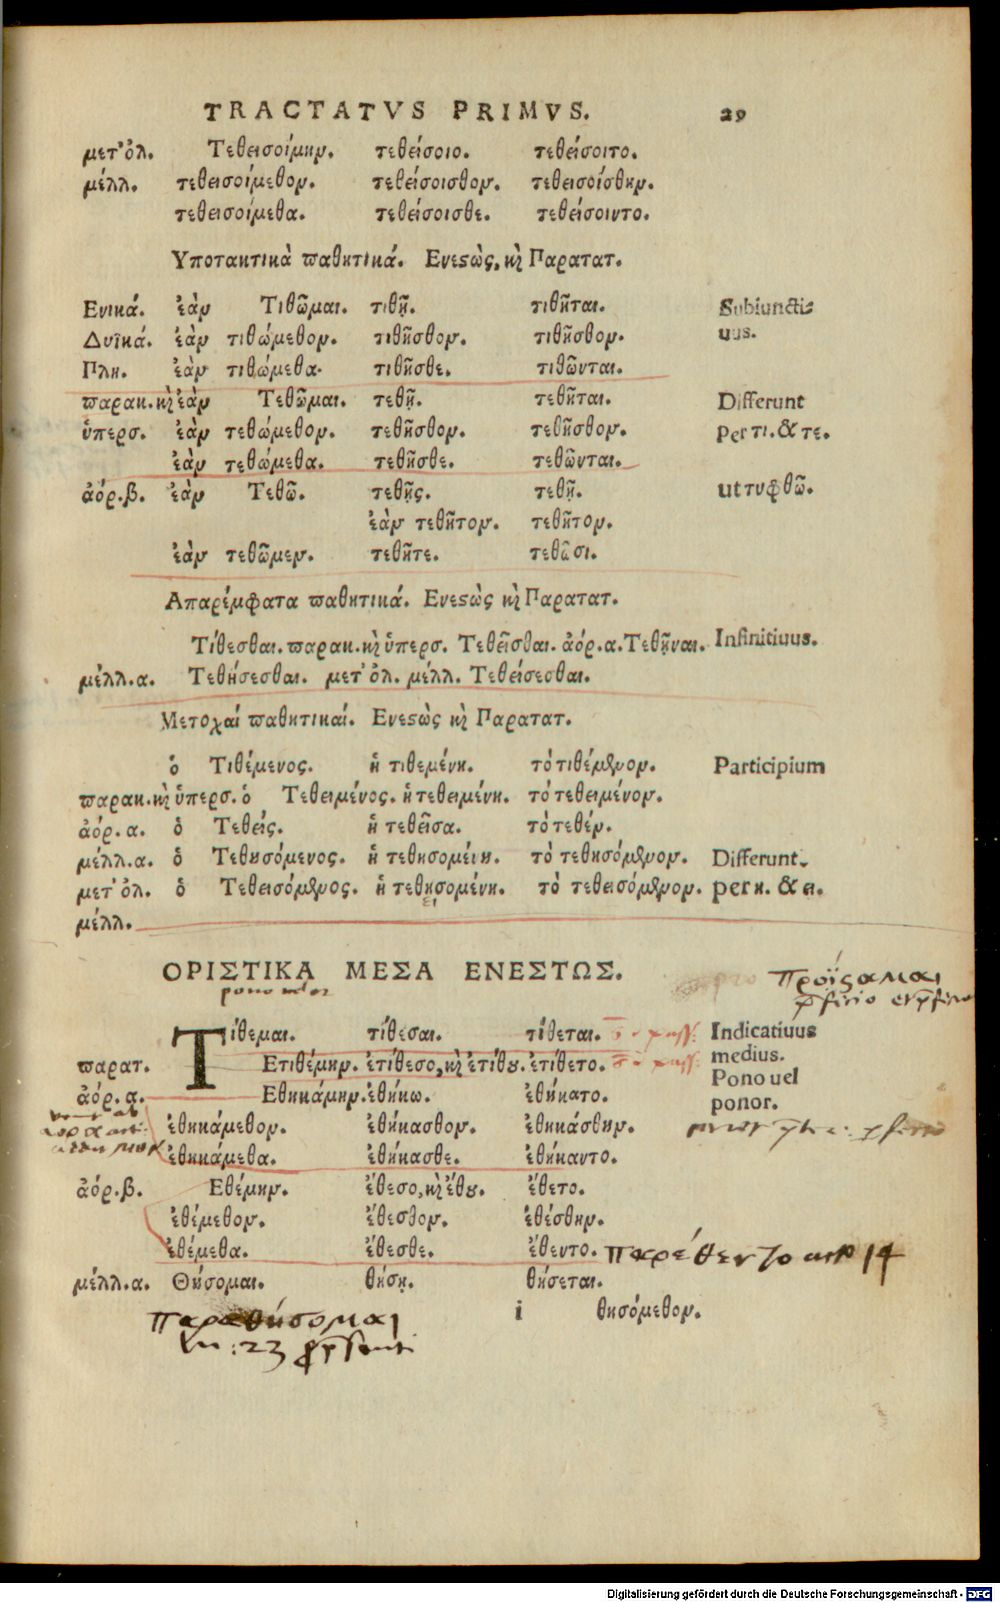 TRACTATVS PRIMVS. 29
μετ᾽ὀλ. Τεθεισοίμην. τεθείσοιο. τεθείσοιτο.
μέλλ. τεθεισοίμεθον. τεθείσοισθον. τεθεισοίσθην.
τεθεισοίμεθα. τεθείσοισθε. τεθείσοιντο.
Υποτακτικὰ παθητικά. Ενεςὼς, κὶ Παρατατ.
Ενικά. ἐὰν Τιθῶμαι. τιθῇ. τιθῆται. Subiuncti-
Δυϊκά. ἐὰν τιθώμεθον. τιθῆσθον. τιθῆσθον. uus.
Πλη. ἐὰν τιθώμεθα. τιθῆσθε. τιθῶνται.
παρακ. κὶ ἐὰν Τεθῶμαι. τεθῇ. τεθῆται. Differunt
ὑπερσ. ἐὰν τεθώμεθον. τεθῆσθον. τεθῆσθον. per τι. & τε.
ἐὰν τεθώμεθα. τεθῆσθε. τεθῶνται.
ἀόρ. β. ἐὰν Τεθῶ. τεθῇς. τεθῇ. ut τυφθῶ.
ἐὰν τεθῆτον. τεθῆτον.
ἐὰν τεθῶμεν. τεθῆτε. τεθῶσι.
Απαρέμφατα παθητικά. Ενεςὼς κὶ Παρατατ.
Τίθεσθαι. παρακ. κὶ ὑπερσ. Τεθεῖσθαι. ἀόρ. α. Τεθῇναι. Infinitiuus.
μέλλ. α. Τεθήσεσθαι. μετ᾽ ὀλ. μέλλ. Τεθείσεσθαι.
Μετοχαί παθητικαί. Ενεςὼς κὶ Παρατατ.
ὁ Τιθέμενος. ἡ τιθεμένη. τὸ τιθέμενον. Participium
παρακ. κὶ ὑπερσ. ὁ Τεθειμένος. ἡ τεθειμένη. τὸ τεθειμένον.
ἀόρ. α. ὁ Τεθείς. ἡ τεθεῖσα. τὸ τεθέν.
μέλλ. α. ὁ Τεθησόμενος. ἡ τεθησομένη. τὸ τεθησόμενον. Differunt
μετ᾽ ὀλ. ὁ Τεθεισόμενος. ἡ τεθησομένη. τὸ τεθεισόμενον. per η. & ει.
ει
μέλλ.
ΟΡΙΣΤΙΚΑ ΜΕΣΑ ΕΝΕΣΤΩΣ.
pono uel or
προΐςαμαι
Τίθεμαι. τίθεσαι. τίθεται. Indicatiuus
παρατ. Ετιθέμην. ἐτίθεσο, κὶ ἐτίθου. ἐτίθετο. medius.
Pono uel
ἀόρ. α. Εθηκάμην. ἐθήκω. ἐθήκατο. ponor.
ἐθηκάμεθον. ἐθήκασθον. ἐθηκάσθην.
ἐθηκάμεθα. ἐθήκασθε. ἐθήκαντο.
ἀόρ. β. Εθέμην. ἔθεσο, κὶ ἔθου. ἔθετο.
ἐθέμεθον. ἔθεσθον. ἐθέσθην.
ἐθέμεθα. ἔθεσθε. ἔθεντο. παρέθεντο 14
μέλλ. α. Θήσομαι. θήσῃ. θήσεται.
i θησόμεθον.
παραθήσομαι
23
Digitalisierung gefördert durch die Deutsche Forschungsgemeinschaft - DFG